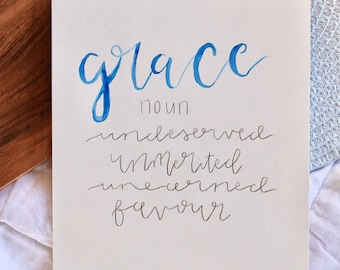 grace
noun
undeserved
unmerited
unearned
favour